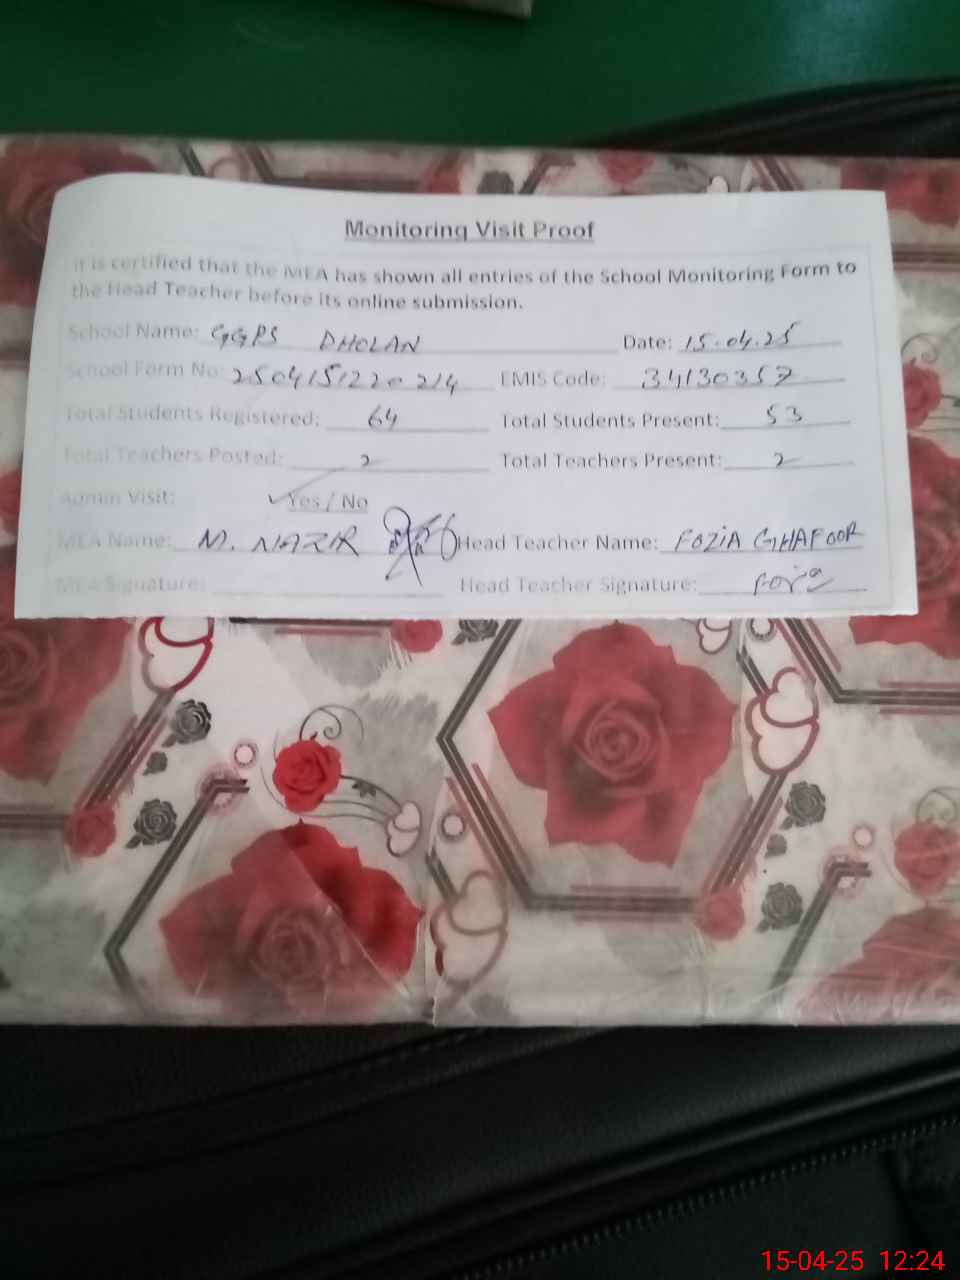 Monitoring Visit Proof
It is certified that the MEA has shown all entries of the School Monitoring Form to
the Head Teacher before its online submission.
School Name: GGPS DHOLAN Date: 15.04.25
School Form No: 2504151220214 EMIS Code: 34130357
Total Students Registered: 64 Total Students Present: 53
Total Teachers Posted: 2 Total Teachers Present: 2
Admin Visit: Yes / No
MEA Name: M. NAZIR Head Teacher Name: FOZIA GHAFOOR
MEA Signature: Head Teacher Signature:
15-04-25 12:24